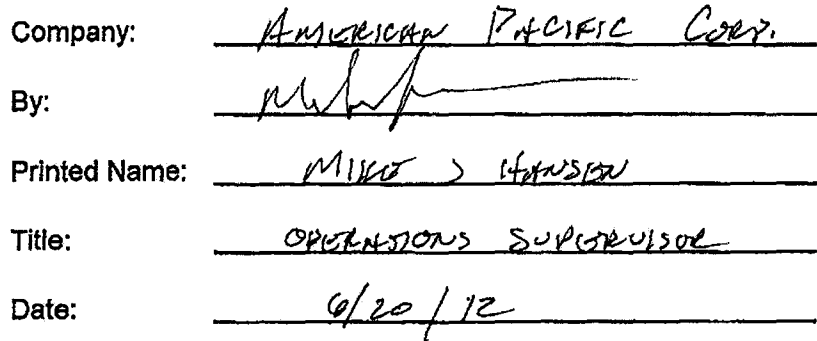 Company: American Pacific Corp.
By:
Printed Name: Mike J Hansen
Title: Operations Supervisor
Date: 6/20/12